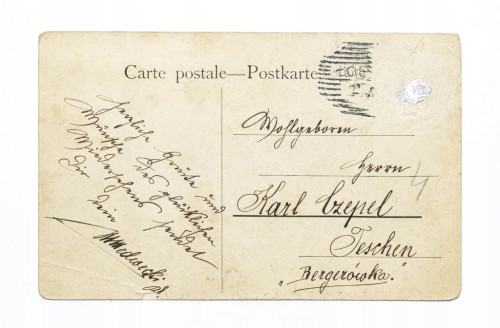 Carte postale—Postkarte
Herzliche Grüße und
Wünsche des glücklichen
Wiedersehens sendet
Dir dein
Wohlgeboren
Herrn
Karl Czepel
Teschen
"Bergerówka."